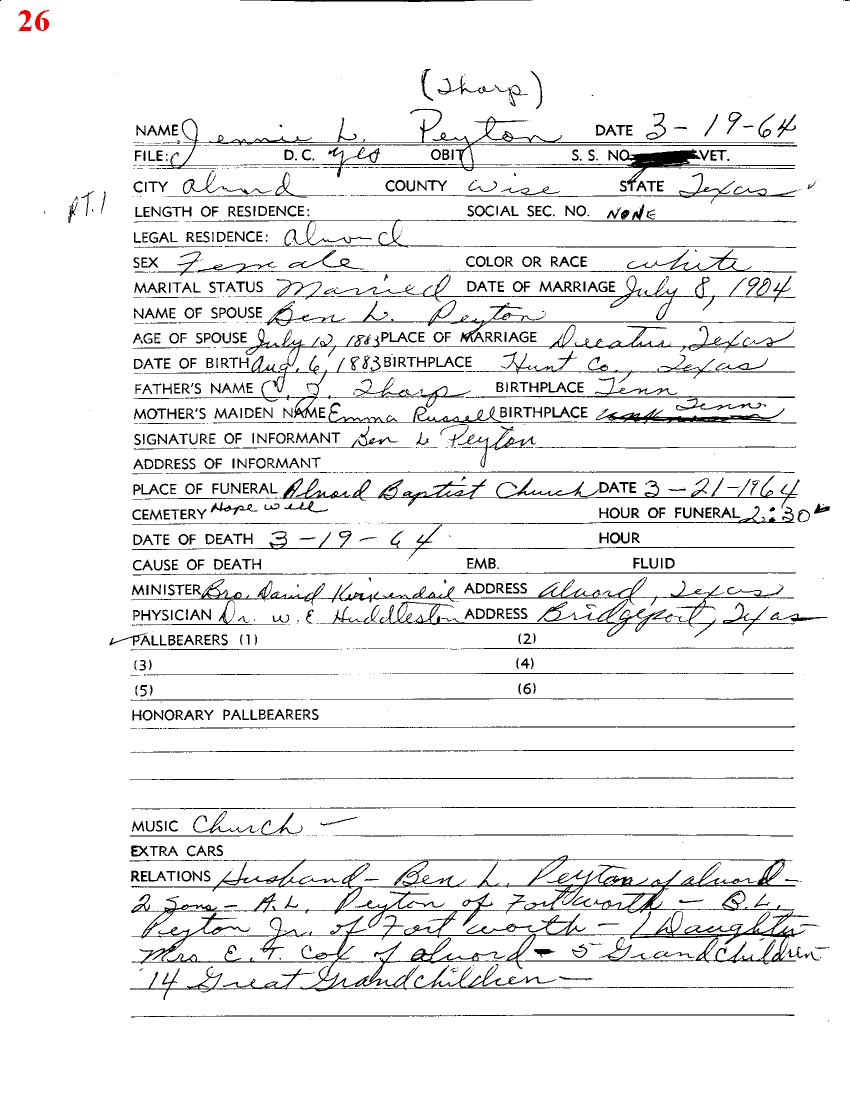 26
(Tharp)
NAME Jennie L. Peyton DATE 3-19-64
FILE: D.C. yes OBIT S. S. NO. VET.
CITY Alvord COUNTY Wise STATE Texas
PT.1
LENGTH OF RESIDENCE: SOCIAL SEC. NO. NONE
LEGAL RESIDENCE: Alvord
SEX Female COLOR OR RACE white
MARITAL STATUS Married DATE OF MARRIAGE July 8, 1904
NAME OF SPOUSE Ben L. Peyton
AGE OF SPOUSE July 12, 1883 PLACE OF MARRIAGE Decatur, Texas
DATE OF BIRTH Aug. 6, 1883 BIRTHPLACE Hunt Co., Texas
FATHER'S NAME Tharp BIRTHPLACE Tenn
MOTHER'S MAIDEN NAME Emma Russell BIRTHPLACE Tenn.
SIGNATURE OF INFORMANT Ben L Peyton
ADDRESS OF INFORMANT
PLACE OF FUNERAL Alvord Baptist Church DATE 3-21-1964
CEMETERY Hopewell HOUR OF FUNERAL 2:30
DATE OF DEATH 3-19-64 HOUR
CAUSE OF DEATH EMB. FLUID
MINISTER Bro. David Kirkendall ADDRESS Alvord, Texas
PHYSICIAN Dr. W. E Huddleston ADDRESS Bridgeport, Texas
PALLBEARERS (1) (2)
(3) (4)
(5) (6)
HONORARY PALLBEARERS
MUSIC Church —
EXTRA CARS
RELATIONS Husband - Ben L. Peyton of Alvord -
2 Sons - A.L. Peyton of Fort Worth - B.L.
Peyton Jr. of Fort Worth - 1 Daughter
Mrs E. T. Cox of Alvord - 5 Grandchildren
14 Great Grandchildren —